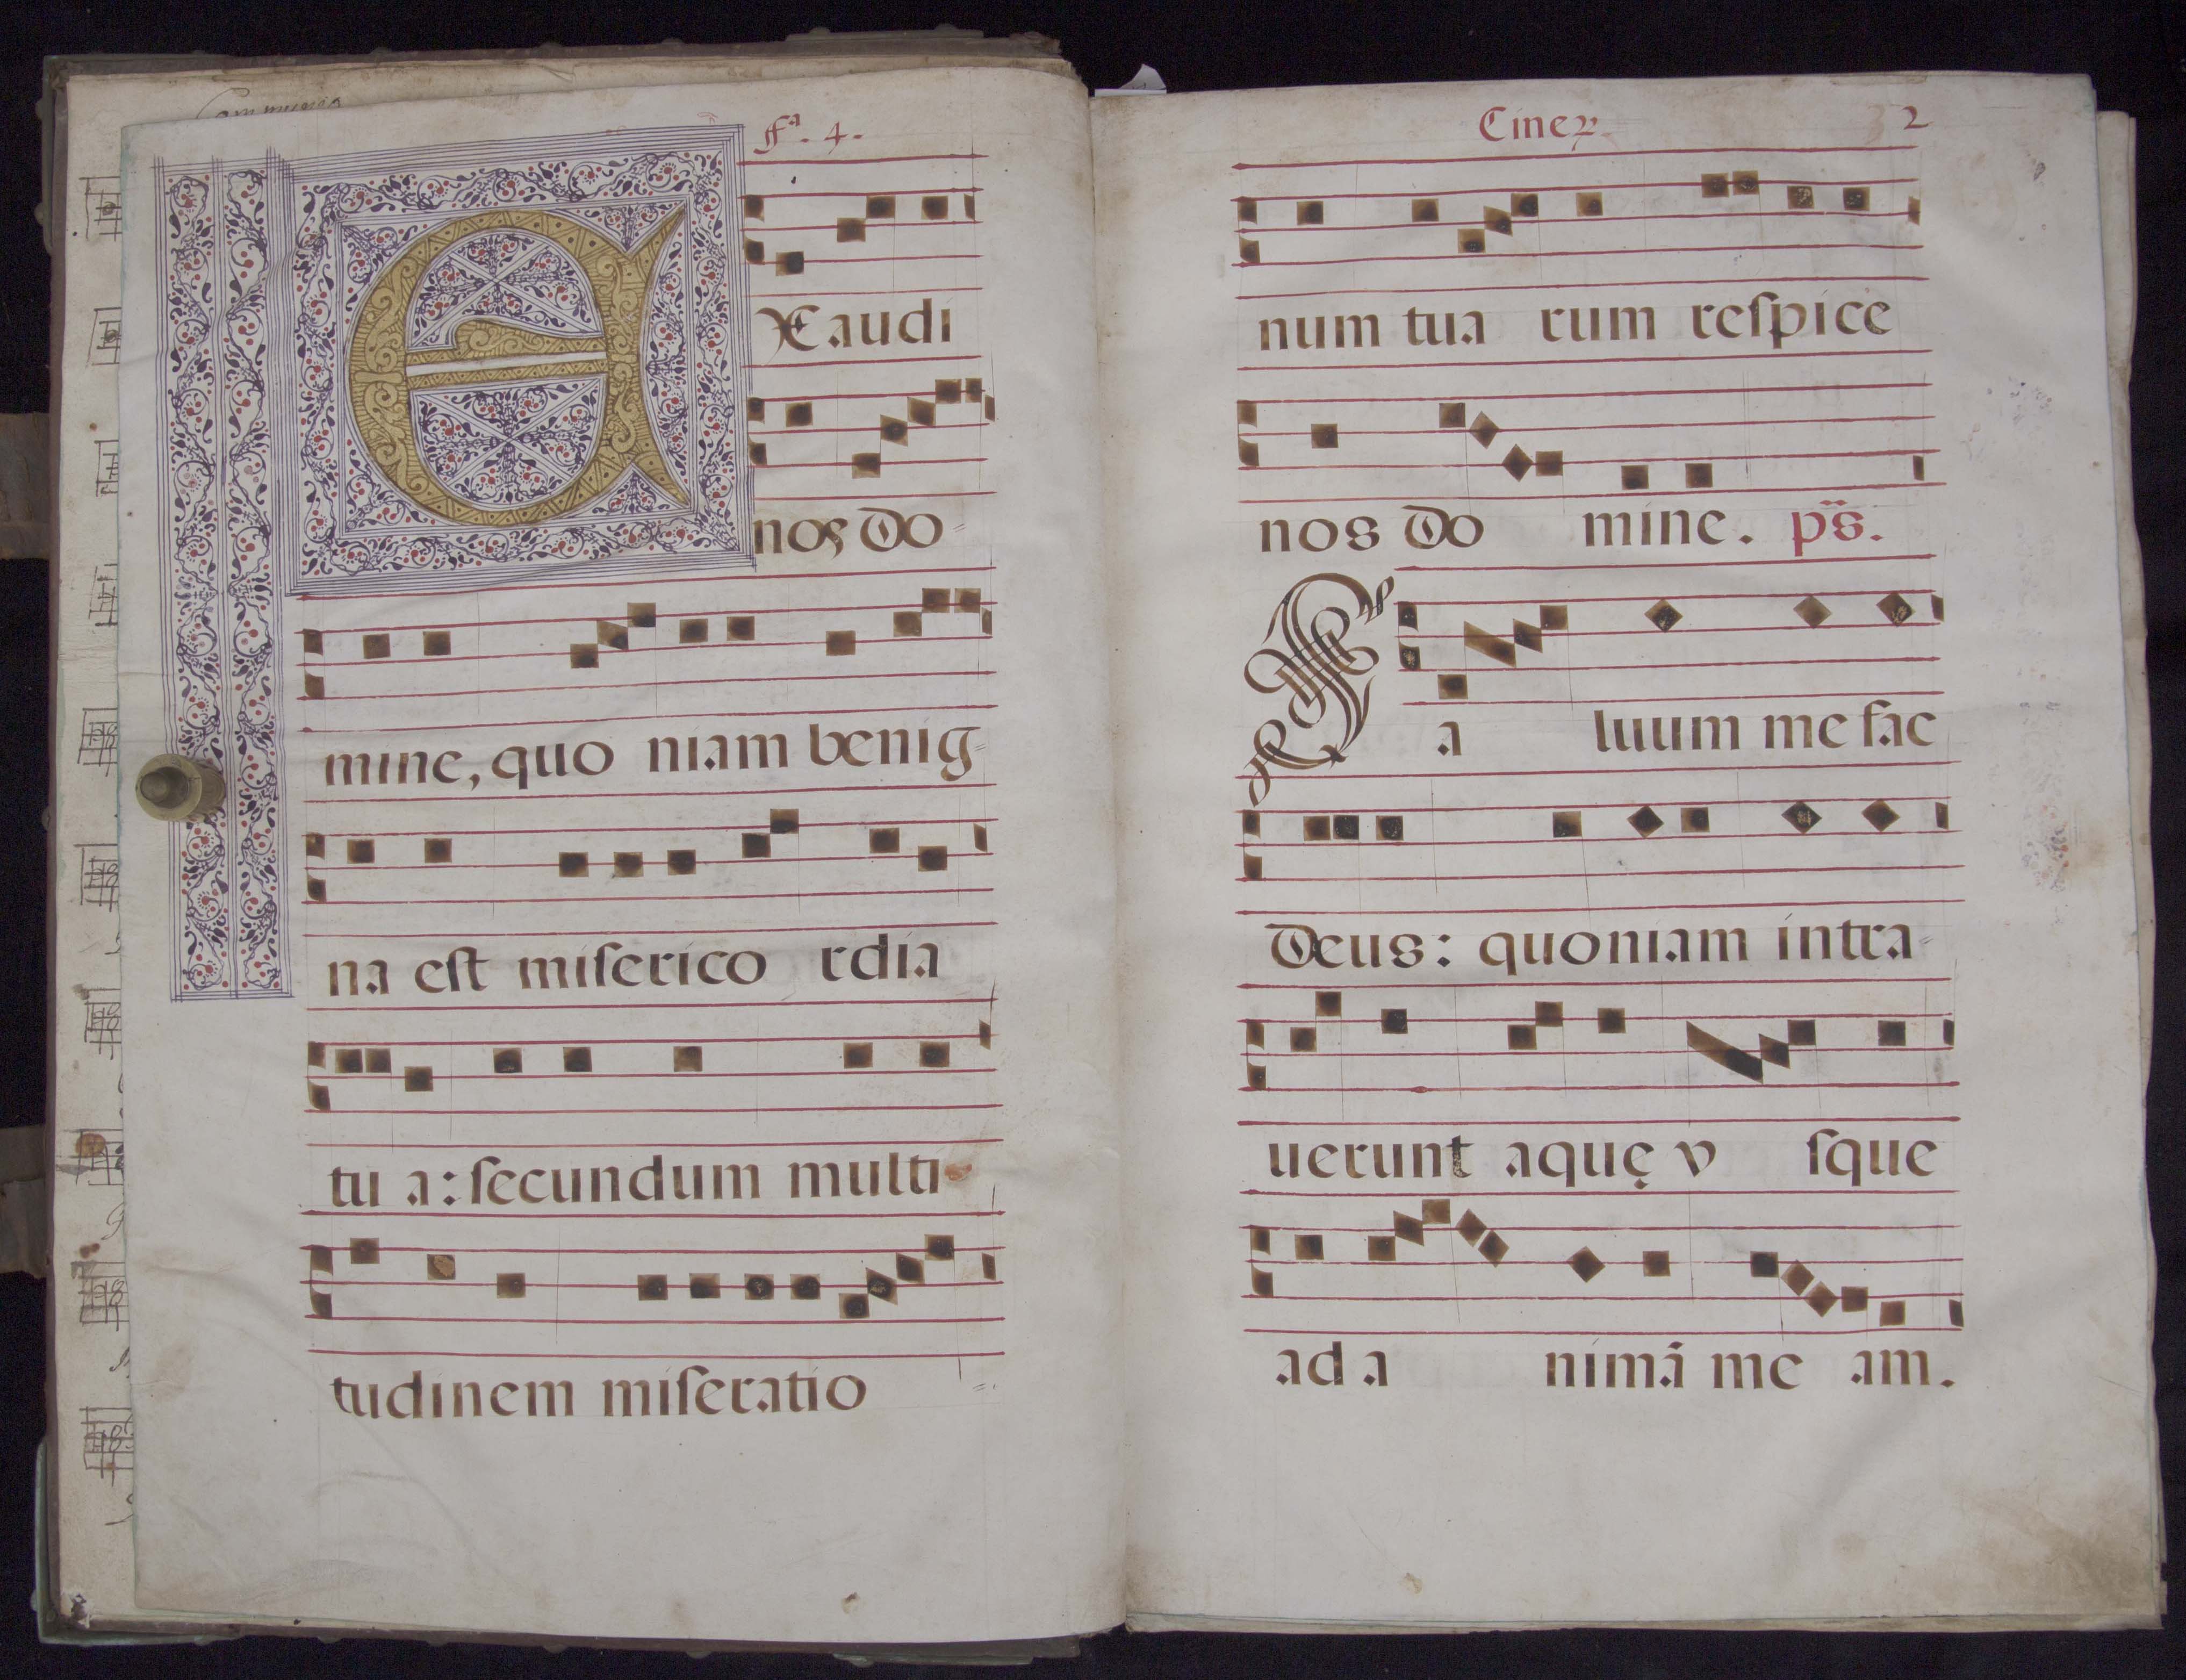 Communio
fª. 4.
EXaudi
nos Do=
mine, quo niam benig=
na est misericordia
tu a: secundum multi
tudinem miseratio
Cineꝝ
2
num tua rum respice
nos Do mine. ps̃.
Sa luum me fac
Deus: quoniam intra-
uerunt aquę v sque
ad a nimã me am.